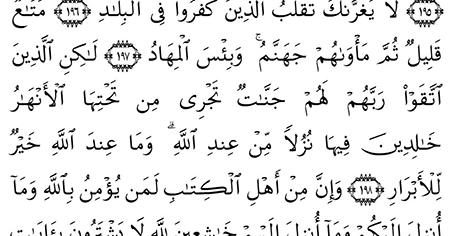 ﴿١٩٥﴾ لَا يَغُرَّنَّكَ تَقَلُّبُ ٱلَّذِينَ كَفَرُوا۟ فِى ٱلْبِلَـٰدِ ﴿١٩٦﴾ مَتَـٰعٌ
قَلِيلٌ ثُمَّ مَأْوَىٰهُمْ جَهَنَّمُ ۚ وَبِئْسَ ٱلْمِهَادُ ﴿١٩٧﴾ لَـٰكِنِ ٱلَّذِينَ
ٱتَّقَوْا۟ رَبَّهُمْ لَهُمْ جَنَّـٰتٌ تَجْرِى مِن تَحْتِهَا ٱلْأَنْهَـٰرُ
خَـٰلِدِينَ فِيهَا نُزُلًا مِّنْ عِندِ ٱللَّهِ ۗ وَمَا عِندَ ٱللَّهِ خَيْرٌ
لِّلْأَبْرَارِ ﴿١٩٨﴾ وَإِنَّ مِنْ أَهْلِ ٱلْكِتَـٰبِ لَمَن يُؤْمِنُ بِٱللَّهِ وَمَآ
أُنزِلَ إِلَيْكُمْ وَمَآ أُنزِلَ إِلَيْهِمْ خَـٰشِعِينَ لِلَّهِ لَا يَشْتَرُونَ بِـَٔايَـٰتِ